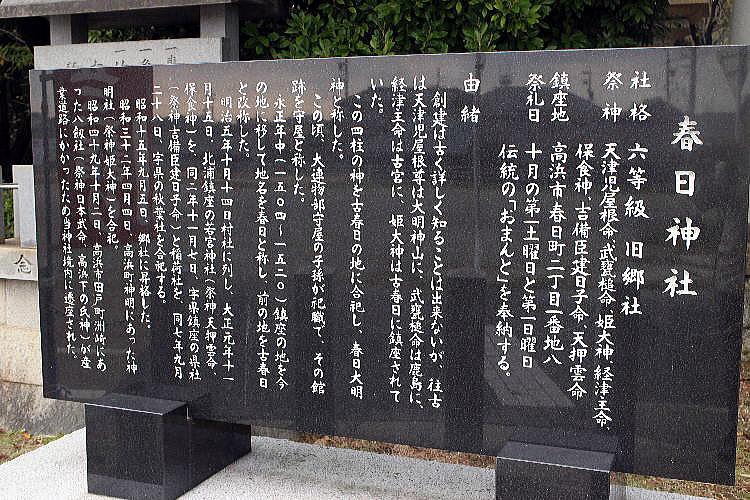 春日神社
社格 六等級 旧郷社
祭神 天津児屋根命、武甕槌命、姫大神、経津主命、
保食神、吉備臣建日子命、天押雲命
鎮座地 高浜市春日町二丁目一番地八
祭礼日 十月の第一土曜日と第一日曜日
伝統の「おまんと」を奉納する。
由緒
創建は古く詳しく知ることは出来ないが、往古
は天津児屋根尊は大明神山に、武甕槌命は鹿島に、
経津主命は古宮に、姫大神は古春日に鎮座されて
いた。
この四柱の神を古春日の地に合祀し、春日大明
神と称した。
この頃、大連物部守屋の子孫が祀職で、その館
跡を守屋と称した。
永正年中(一五〇四〜一五二〇)鎮座の地を今
の地に移して地名を春日と称し、前の地を古春日
と改称した。
明治五年十月十四日村社に列し、大正元年十一
月十五日、北浦鎮座の若宮神社(祭神天押雲命、
保食神)を、同二年十一月七日、字県鎮座の県社
(祭神吉備臣建日子命)と稲荷社を、同七年九月
二十八日、字県の秋葉社を合祀する。
昭和十五年九月五日、郷社に昇格した。
昭和三十二年四月四日、高浜町神明にあった神
明社(祭神姫大神)を合祀
昭和四十九年十月二日、高浜市田戸町洲崎にあ
った八剱社(祭神日本武命、高浜下の氏神)が産
業道路にかかったため当神社境内に遷座された。
念